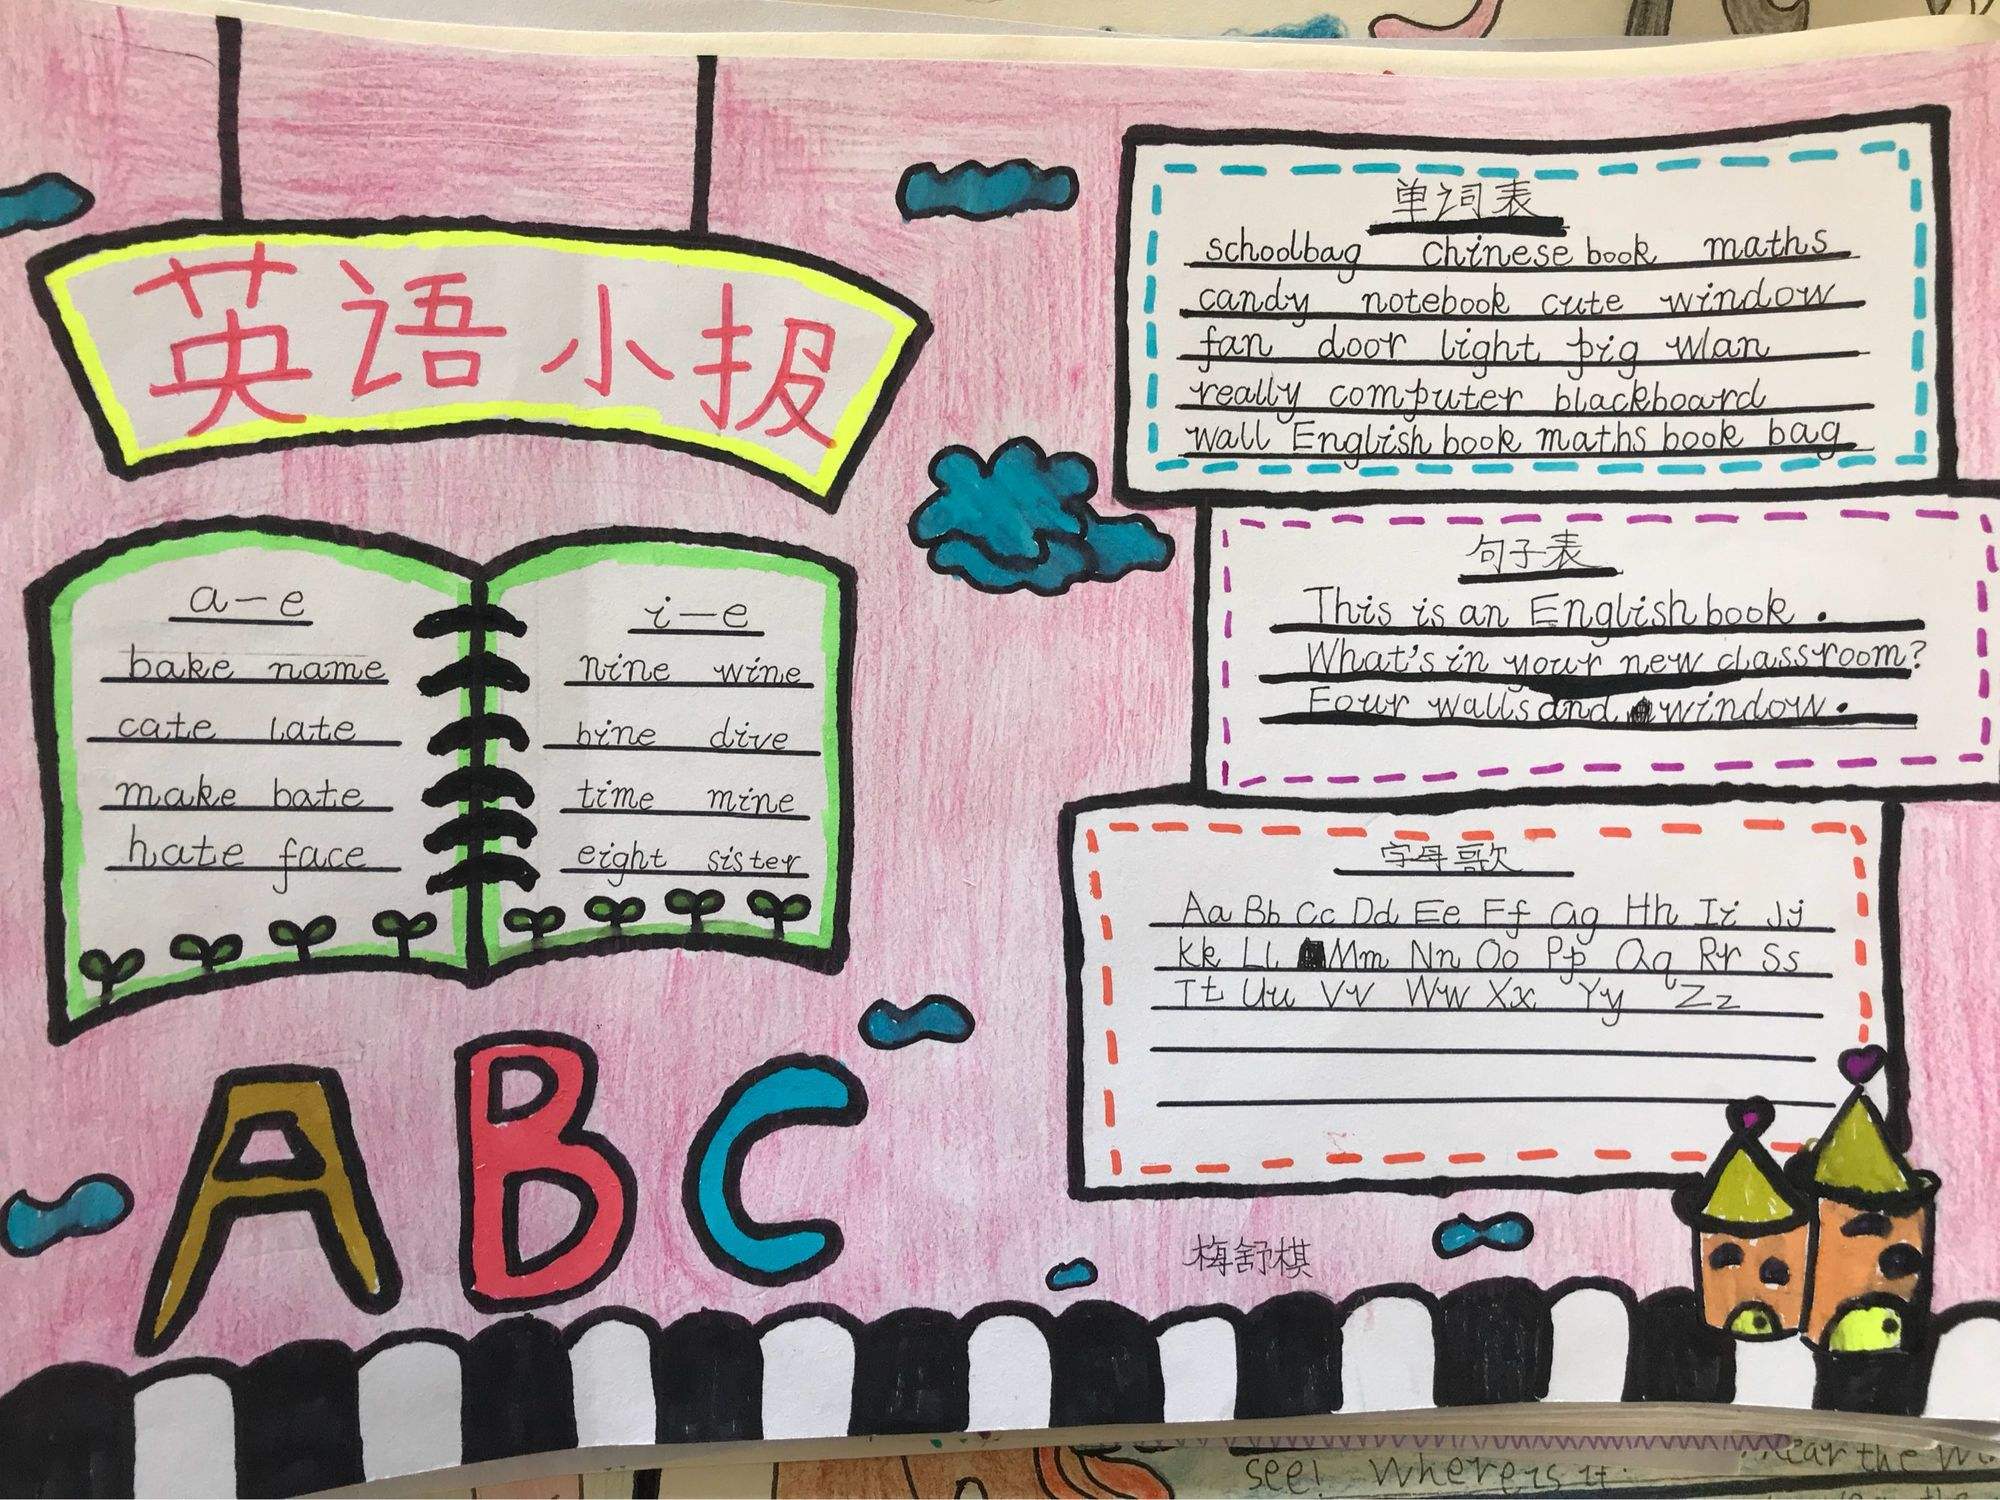 英语小报
a-e
bake name
cate late
make bate
hate face
i-e
nine wine
bine dive
time mine
eight sister
ABC
单词表
schoolbag Chinese book maths
candy notebook cute window
fan door light pig wlan
really computer blackboard
wall English book maths book bag
句子表
This is an English book.
What's in your new classroom?
Four walls and window.
字母歌
Aa Bb Cc Dd Ee Ff Gg Hh Ii Jj
Kk Ll Mm Nn Oo Pp Qq Rr Ss
Tt Uu Vv Ww Xx Yy Zz
梅舒棋
see! Where is it